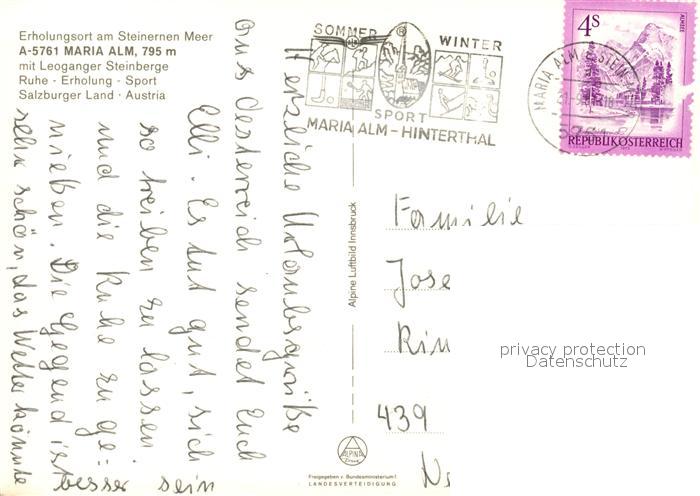 Erholungsort am Steinernen Meer
A-5761 MARIA ALM, 795 m
mit Leoganger Steinberge
Ruhe - Erholung - Sport
Salzburger Land · Austria
SOMMER
WINTER
SPORT
MARIA ALM - HINTERTHAL
MARIA ALM STEIN
4S
ALMSEE
REPUBLIK ÖSTERREICH
Herzliche Urlaubsgrüße
aus Österreich sendet Euch
Elli. Es tut gut, sich
so treiben zu lassen
und die Ruhe zu ge=
nießen. Die Gegend ist
sehr schön, das Wetter könnte
besser sein
Alpine Luftbild Innsbruck
Familie
Jose
Rin
439
privacy protection
Datenschutz
ALPINA
Druck
Freigegeben v. Bundesministerium f.
LANDESVERTEIDIGUNG